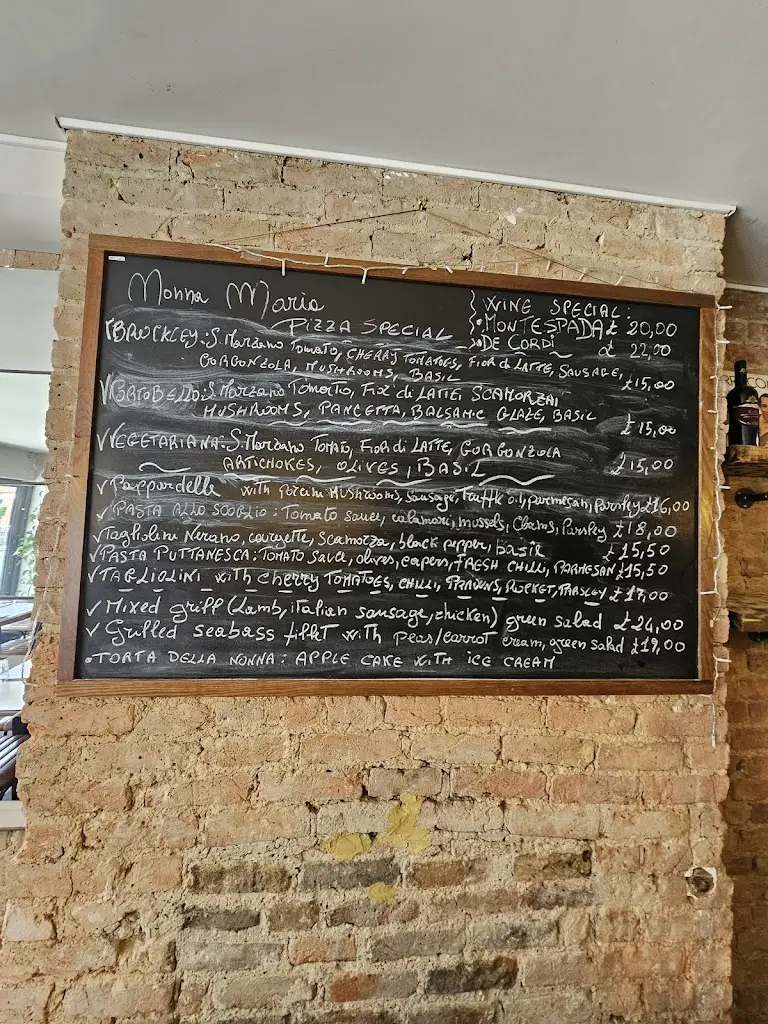 Monna Maria
WINE SPECIAL:
PIZZA SPECIAL
MONTESPADA £ 20,00
DE CORDI £ 22,00
BROCKLEY: S. Marzano Tomato, CHERRY TOMATOES, FIOR di LATTE, SAUSAGE,
GORGONZOLA, MUSHROOMS, BASIL £15,00
PORTOBELLO: S. Marzano Tomato, FIOR di LATTE, SCAMORZA
MUSHROOMS, PANCETTA, BALSAMIC GLAZE, BASIL £15,00
VEGETARIANA: S. Marzano Tomato, FIOR di LATTE, GORGONZOLA
ARTICHOKES, OLIVES, BASIL £15,00
Pappardelle with porcini MUSHROOMS, sausage, truffle oil, parmesan, parsley £16,00
PASTA ALLO SCOGLIO: Tomato sauce, calamari, mussels, Clams, Parsley £18,00
Tagliolini Nerano, courgette, scamorza, black pepper, basil £15,50
PASTA PUTTANESCA: TOMATO SAUCE, olives, capers, FRESH CHILLI, PARMESAN £15,50
TAGLIOLINI with cherry TOMATOES, CHILLI, PRAWNS, ROCKET, PARSLEY £17,00
Mixed grill (Lamb, italian sausage, chicken) green salad £24,00
Grilled seabass fillet with peas/carrot cream, green salad £19,00
TORTA DELLA NONNA: APPLE CAKE WITH ICE CREAM